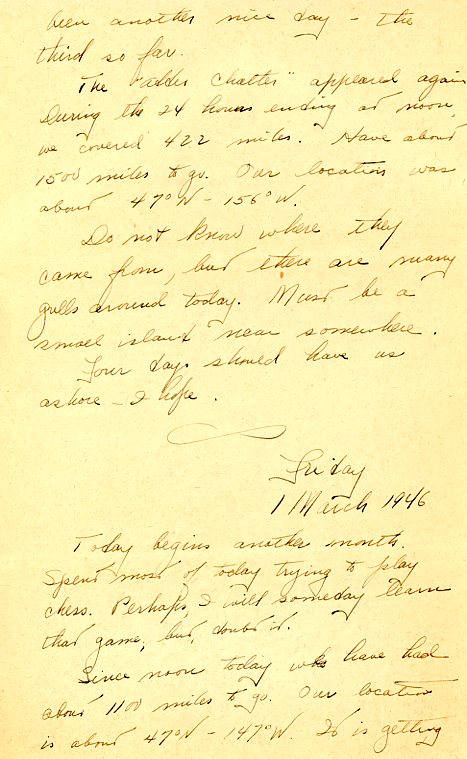 been another nice day - the
third so far.
The "adler chatter" appeared again
During the 24 hours ending at noon,
we covered 422 miles. Have about
1500 miles to go. Our location was
about 47°N - 156°W.
Do not know where they
came from, but there are many
gulls around today. Must be a
small island near somewhere.
Four days should have us
ashore - I hope.
Friday
1 March 1946
Today begins another month.
Spent most of today trying to play
chess. Perhaps, I will someday learn
that game, but, doubt it.
Since noon today we have had
about 1100 miles to go. Our location
is about 47°N - 147°W. It is getting